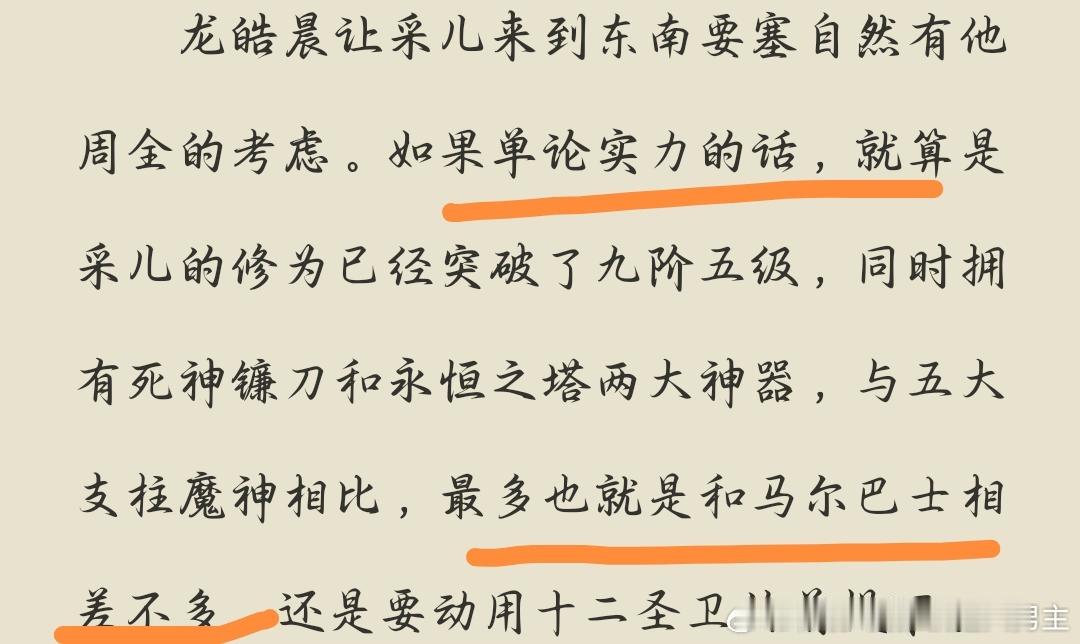 龙皓晨让采儿来到东南要塞自然有他
周全的考虑。如果单论实力的话，就算是
采儿的修为已经突破了九阶五级，同时拥
有死神镰刀和永恒之塔两大神器，与五大
支柱魔神相比，最多也就是和马尔巴士相
差不多，还是要动用十二圣卫